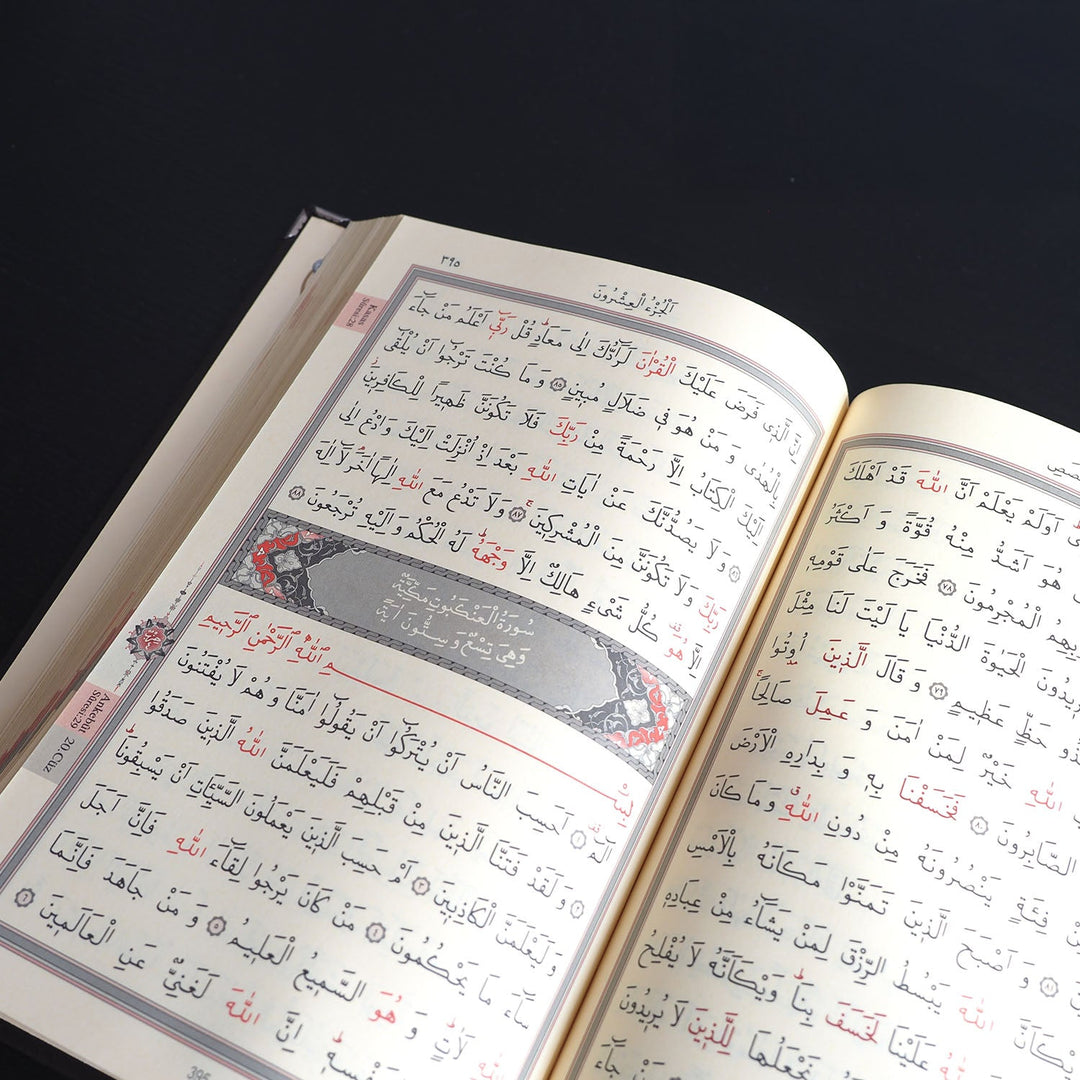 ٣٩٥
اَلْجُزْءُ الْعِشْرُونَ
Kasas
Sûresi-28
اِنَّ الَّذ۪ي فَرَضَ عَلَيْكَ الْقُرْاٰنَ لَرَٓادُّكَ اِلٰى مَعَادٍۜ قُلْ رَبّ۪ٓي اَعْلَمُ مَنْ جَٓاءَ
بِالْهُدٰى وَ مَنْ هُوَ ف۪ي ضَلَالٍ مُب۪ينٍ ﴿٨٥﴾ وَ مَا كُنْتَ تَرْجُٓوا اَنْ يُلْقٰٓى
اِلَيْكَ الْكِتَابُ اِلَّا رَحْمَةً مِنْ رَبِّكَ فَلَا تَكُونَنَّ ظَه۪يرًا لِلْكَافِر۪ينَۘ
﴿٨٦﴾ وَ لَا يَصُدُّنَّكَ عَنْ اٰيَاتِ اللّٰهِ بَعْدَ اِذْ اُنْزِلَتْ اِلَيْكَ وَادْعُ اِلٰى
رَبِّكَ وَلَا تَكُونَنَّ مِنَ الْمُشْرِك۪ينَۚ ﴿٨٧﴾ وَلَا تَدْعُ مَعَ اللّٰهِ اِلٰهًا اٰخَرَۢ لَٓا اِلٰهَ
اِلَّا هُوَ۠ كُلُّ شَيْءٍ هَالِكٌ اِلَّا وَجْهَهُۜ لَهُ الْحُكْمُ وَ اِلَيْهِ تُرْجَعُونَ ﴿٨٨﴾
سُورَةُ الْعَنْكَبُوتِ مَكِّيَّةٌ
وَهِيَ تِسْعٌ وَ سِتُّونَ اٰيَةً
Ankebût
Sûresi-29
20.Cüz
بِسْمِ اللّٰهِ الرَّحْمٰنِ الرَّح۪يمِ
الٓمٓۜ ﴿١﴾ اَحَسِبَ النَّاسُ اَنْ يُتْرَكُٓوا اَنْ يَقُولُٓوا اٰمَنَّا وَ هُمْ لَا يُفْتَنُونَ
﴿٢﴾ وَ لَقَدْ فَتَنَّا الَّذ۪ينَ مِنْ قَبْلِهِمْ فَلَيَعْلَمَنَّ اللّٰهُ الَّذ۪ينَ صَدَقُوا
وَ لَيَعْلَمَنَّ الْكَاذِب۪ينَ ﴿٣﴾ اَمْ حَسِبَ الَّذ۪ينَ يَعْمَلُونَ السَّيِّـَٔاتِ اَنْ يَسْبِقُونَاۜ
سَٓاءَ مَا يَحْكُمُونَ ﴿٤﴾ مَنْ كَانَ يَرْجُوا لِقَٓاءَ اللّٰهِ فَاِنَّ اَجَلَ
اللّٰهِ لَاٰتٍۜ وَ هُوَ السَّم۪يعُ الْعَل۪يمُ ﴿٥﴾ وَ مَنْ جَاهَدَ فَاِنَّمَا
لِنَفْسِه۪ۜ اِنَّ اللّٰهَ لَغَنِيٌّ عَنِ الْعَالَم۪ينَ ﴿٦﴾
395
اَوَلَمْ يَعْلَمْ اَنَّ اللّٰهَ قَدْ اَهْلَكَ
هُوَ اَشَدُّ مِنْهُ قُوَّةً وَ اَكْثَرُ
الْمُجْرِمُونَ ﴿٧٨﴾ فَخَرَجَ عَلٰى قَوْمِه۪
الْحَيٰوةَ الدُّنْيَا يَا لَيْتَ لَنَا مِثْلَ
حَظٍّ عَظ۪يمٍ ﴿٧٩﴾ وَ قَالَ الَّذ۪ينَ اُو۫تُوا
اللّٰهِ خَيْرٌ لِمَنْ اٰمَنَ وَ عَمِلَ صَالِحًاۚ
الصَّابِرُونَ ﴿٨٠﴾ فَخَسَفْنَا بِه۪ وَ بِدَارِهِ الْاَرْضَ
فِئَةٍ يَنْصُرُونَهُ مِنْ دُونِ اللّٰهِۗ وَ مَا كَانَ
﴿٨١﴾ وَ اَصْبَحَ الَّذ۪ينَ تَمَنَّوْا مَكَانَهُ بِالْاَمْسِ
اللّٰهَ يَبْسُطُ الرِّزْقَ لِمَنْ يَشَٓاءُ مِنْ عِبَادِه۪
اللّٰهُ عَلَيْنَا لَخَسَفَ بِنَاۜ وَيْكَاَنَّهُ لَا يُفْلِحُ
نَجْعَلُهَا لِلَّذ۪ينَ لَا يُر۪يدُونَ
جَٓاءَ